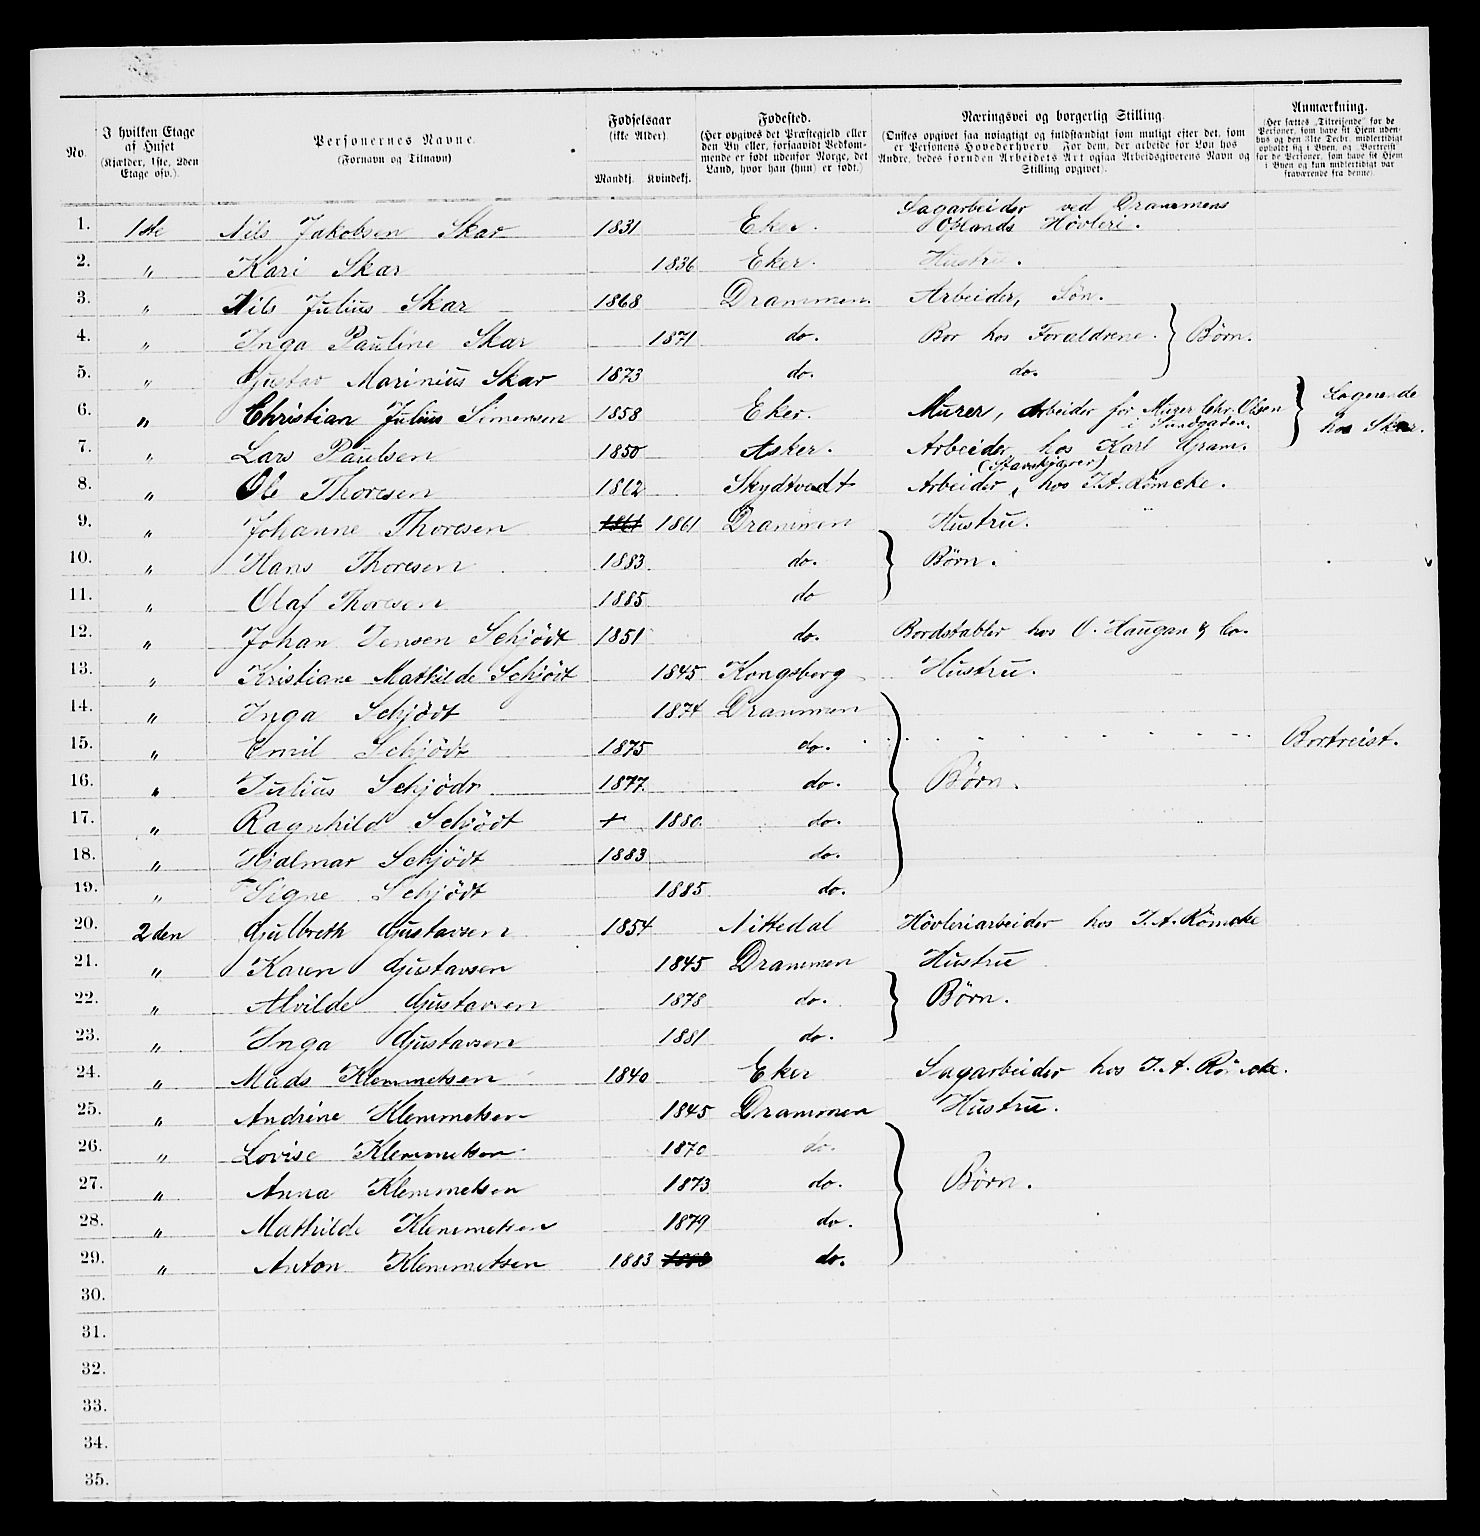 No. | I hvilken Etage af Huset (Kjælder, 1ste, 2den Etage osv.). | Personernes Navne. (Fornavn og Tilnavn) | Fødselsaar (ikke Alder). Mandkj. | Kvindekj. | Fødested. (Her opgives det Præstegjeld eller den By eller, forsaavidt Vedkommende er født udenfor Norge, det Land, hvor han (hun) er født.) | Næringsvei og borgerlig Stilling. (Ønskes opgivet saa nøiagtigt og fuldstændigt som muligt efter det, som er Personens Hovederhverv. For dem, der arbeide for Løn hos Andre, bedes foruden Arbeidets Art ogsaa Arbeidsgiverens Navn og Stilling opgivet). | Anmærkning. (Her sættes „Tilreisende" for de Personer, som have sit Hjem udenbys og den 31te Decbr. midlertidigt opholdt sig i Byen, og „Bortreist" for de Personer, som have sit Hjem i Byen og kun midlertidigt var fraværende fra denne).
1. | 1ste | Nils Jakobsen Skar | 1831 | | Eker. | Sagarbeider ved Drammens Oplands Høvleri.
2. | " | Kari Skar | | 1836 | Eker. | Hustru.
3. | " | Nils Julius Skar | 1868 | | Drammen. | Arbeider, Søn.
4. | " | Inga Pauline Skar | | 1871 | do. | Bor hos Forældrene. } Børn.
5. | " | Gustav Marinius Skar | 1873 | | do. | do.
6. | " | Christian Julius Simensen | 1858 | | Eker. | Murer, Arbeider for Murer Chr. Olsen i Sundgaden. | } Logerende
7. | " | Lars Paulsen | 1850 | | Asker. | Arbeider hos Karl Gram. | hos Skar.
8. | " | Ole Thoresen | 1862 | | Skydtvedt | Arbeider, (Stavskjærer) hos J.A. Römcke.
9. | " | Johanne Thoresen | 1861 | 1861 | Drammen | Hustru.
10. | " | Hans Thoresen | 1883. | | do. | } Børn.
11. | " | Olaf Thoresen | 1885 | | do
12. | " | Johan Jensen Schjödt | 1851 | | do. | Bordstabler hos O. Haugan & Co.
13. | " | Kristiane Mathilde Schjödt | | 1845 | Kongsberg | Hustru.
14. | " | Inga Schjödt | | 1874 | Drammen
15. | " | Emil Schjödt | 1875 | | do. | | Bortreist.
16. | " | Julius Schjödt | 1877. | | do. | } Børn.
17. | " | Ragnhild Schjödt | + | 1880. | do.
18. | " | Hjalmar Schjödt | 1883 | | do.
19. | " | Signe Schjödt | | 1885 | do.
20. | 2den | Gulbreth Gustavsen | 1854 | | Nittedal | Hövleriarbeider hos J. A. Römcke
21. | " | Karen Gustavsen | | 1845 | Drammen | Hustru
22. | " | Alvilde Gustavsen | | 1878 | do. | } Børn.
23. | " | Inga Gustavsen | | 1881 | do.
24. | " | Mads Klemmetsen | 1840 | | Eker | Sagarbeider hos J. A. Römcke.
25. | " | Andrine Klemmetsen | | 1845 | Drammen | Hustru.
26. | " | Lovise Klemmetsen | | 1870 | do.
27. | " | Anna Klemmetsen | | 1873 | do. | } Børn.
28. | " | Mathilde Klemmetsen | | 1879 | do.
29. | " | Anton Klemmetsen | 1883 | | do.
30.
31.
32.
33.
34.
35.